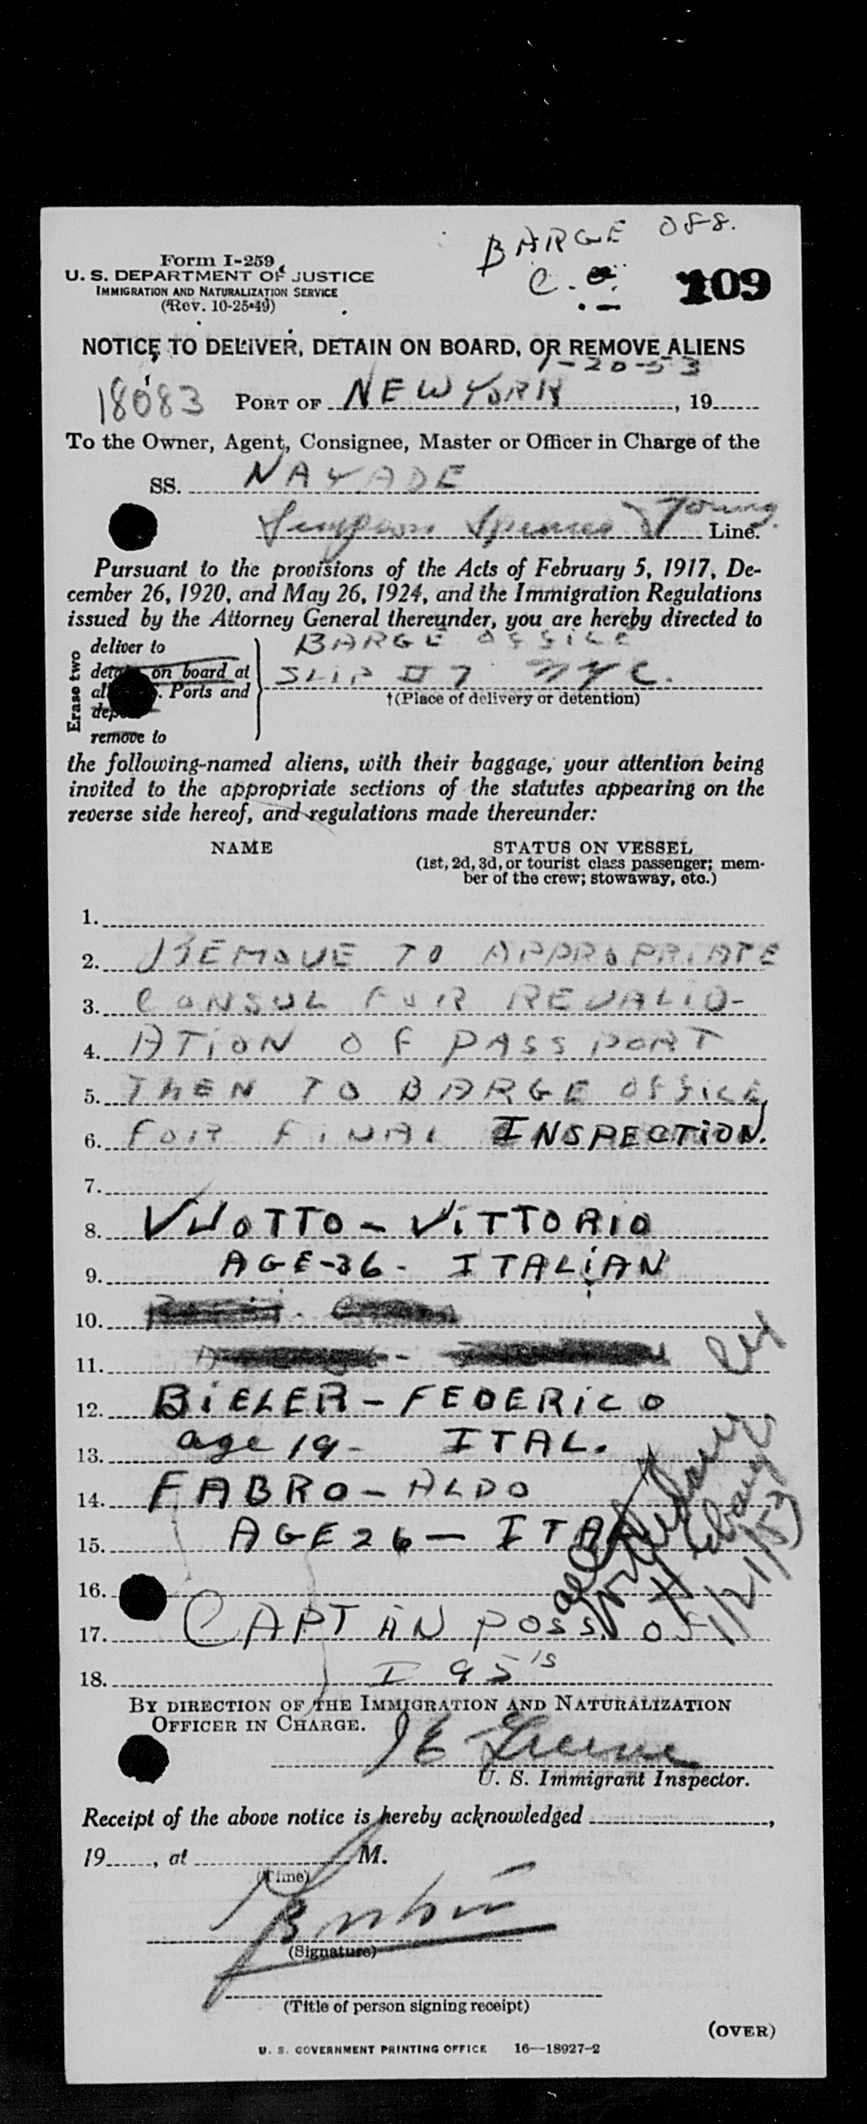 BARGE OFF.
Form I-259
U. S. DEPARTMENT OF JUSTICE
IMMIGRATION AND NATURALIZATION SERVICE
(Rev. 10-25-49)
C.
109
NOTICE TO DELIVER, DETAIN ON BOARD, OR REMOVE ALIENS
1-20-53
18083 PORT OF NEW YORK, 19
To the Owner, Agent, Consignee, Master or Officer in Charge of the
SS. NAYADE
Simpson Spence & Young Line.
Pursuant to the provisions of the Acts of February 5, 1917, De-
cember 26, 1920, and May 26, 1924, and the Immigration Regulations
issued by the Attorney General thereunder, you are hereby directed to
Erase two
deliver to BARGE OFFICE
on board at SLIP #7 NYC.
Ports and †(Place of delivery or detention)
remove to
the following-named aliens, with their baggage, your attention being
invited to the appropriate sections of the statutes appearing on the
reverse side hereof, and regulations made thereunder:
NAME STATUS ON VESSEL
(1st, 2d, 3d, or tourist class passenger; mem-
ber of the crew; stowaway, etc.)
1.
2. REMOVE TO APPROPRIATE
3. CONSUL FOR REVALID-
4. ATION OF PASSPORT
5. THEN TO BARGE OFFICE
6. FOR FINAL INSPECTION.
7.
8. VUOTTO - VITTORIO
9. AGE-36- ITALIAN
10.
11.
12. BIELER - FEDERICO
13. age 19- ITAL.
14. FABRO - ALDO
15. AGE 26 - ITAL
16.
17. CAPT IN POSS. OF
18. I 95's
1/21/53
BY DIRECTION OF THE IMMIGRATION AND NATURALIZATION
OFFICER IN CHARGE.
J E Greene
U. S. Immigrant Inspector.
Receipt of the above notice is hereby acknowledged ,
19 , at M.
(Time)
(Signature)
(Title of person signing receipt)
(OVER)
U. S. GOVERNMENT PRINTING OFFICE 16—18927-2